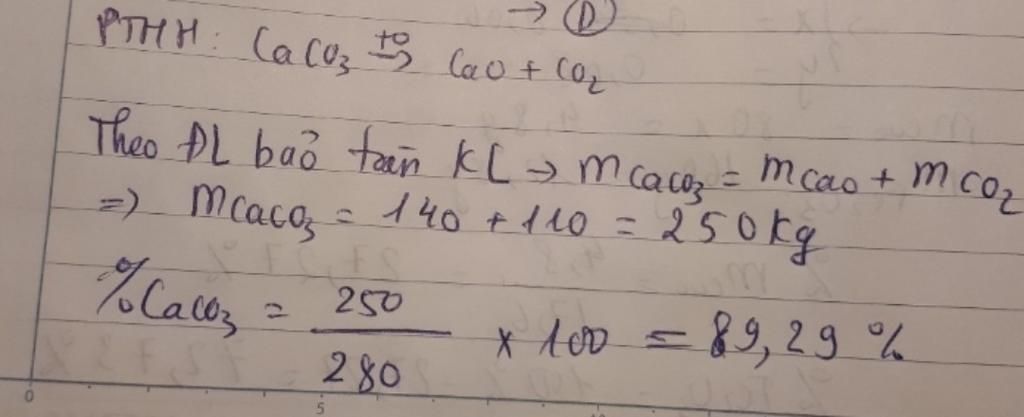 → (D)
PTHH: CaCO₃ t⁰→ CaO + CO₂
Theo ĐL baỏ toàn KL → mCaCO₃ = mCaO + mCO₂
=> mCaCO₃ = 140 + 110 = 250 kg
%CaCO₃ = 250 / 280 × 100 = 89,29 %
0 5